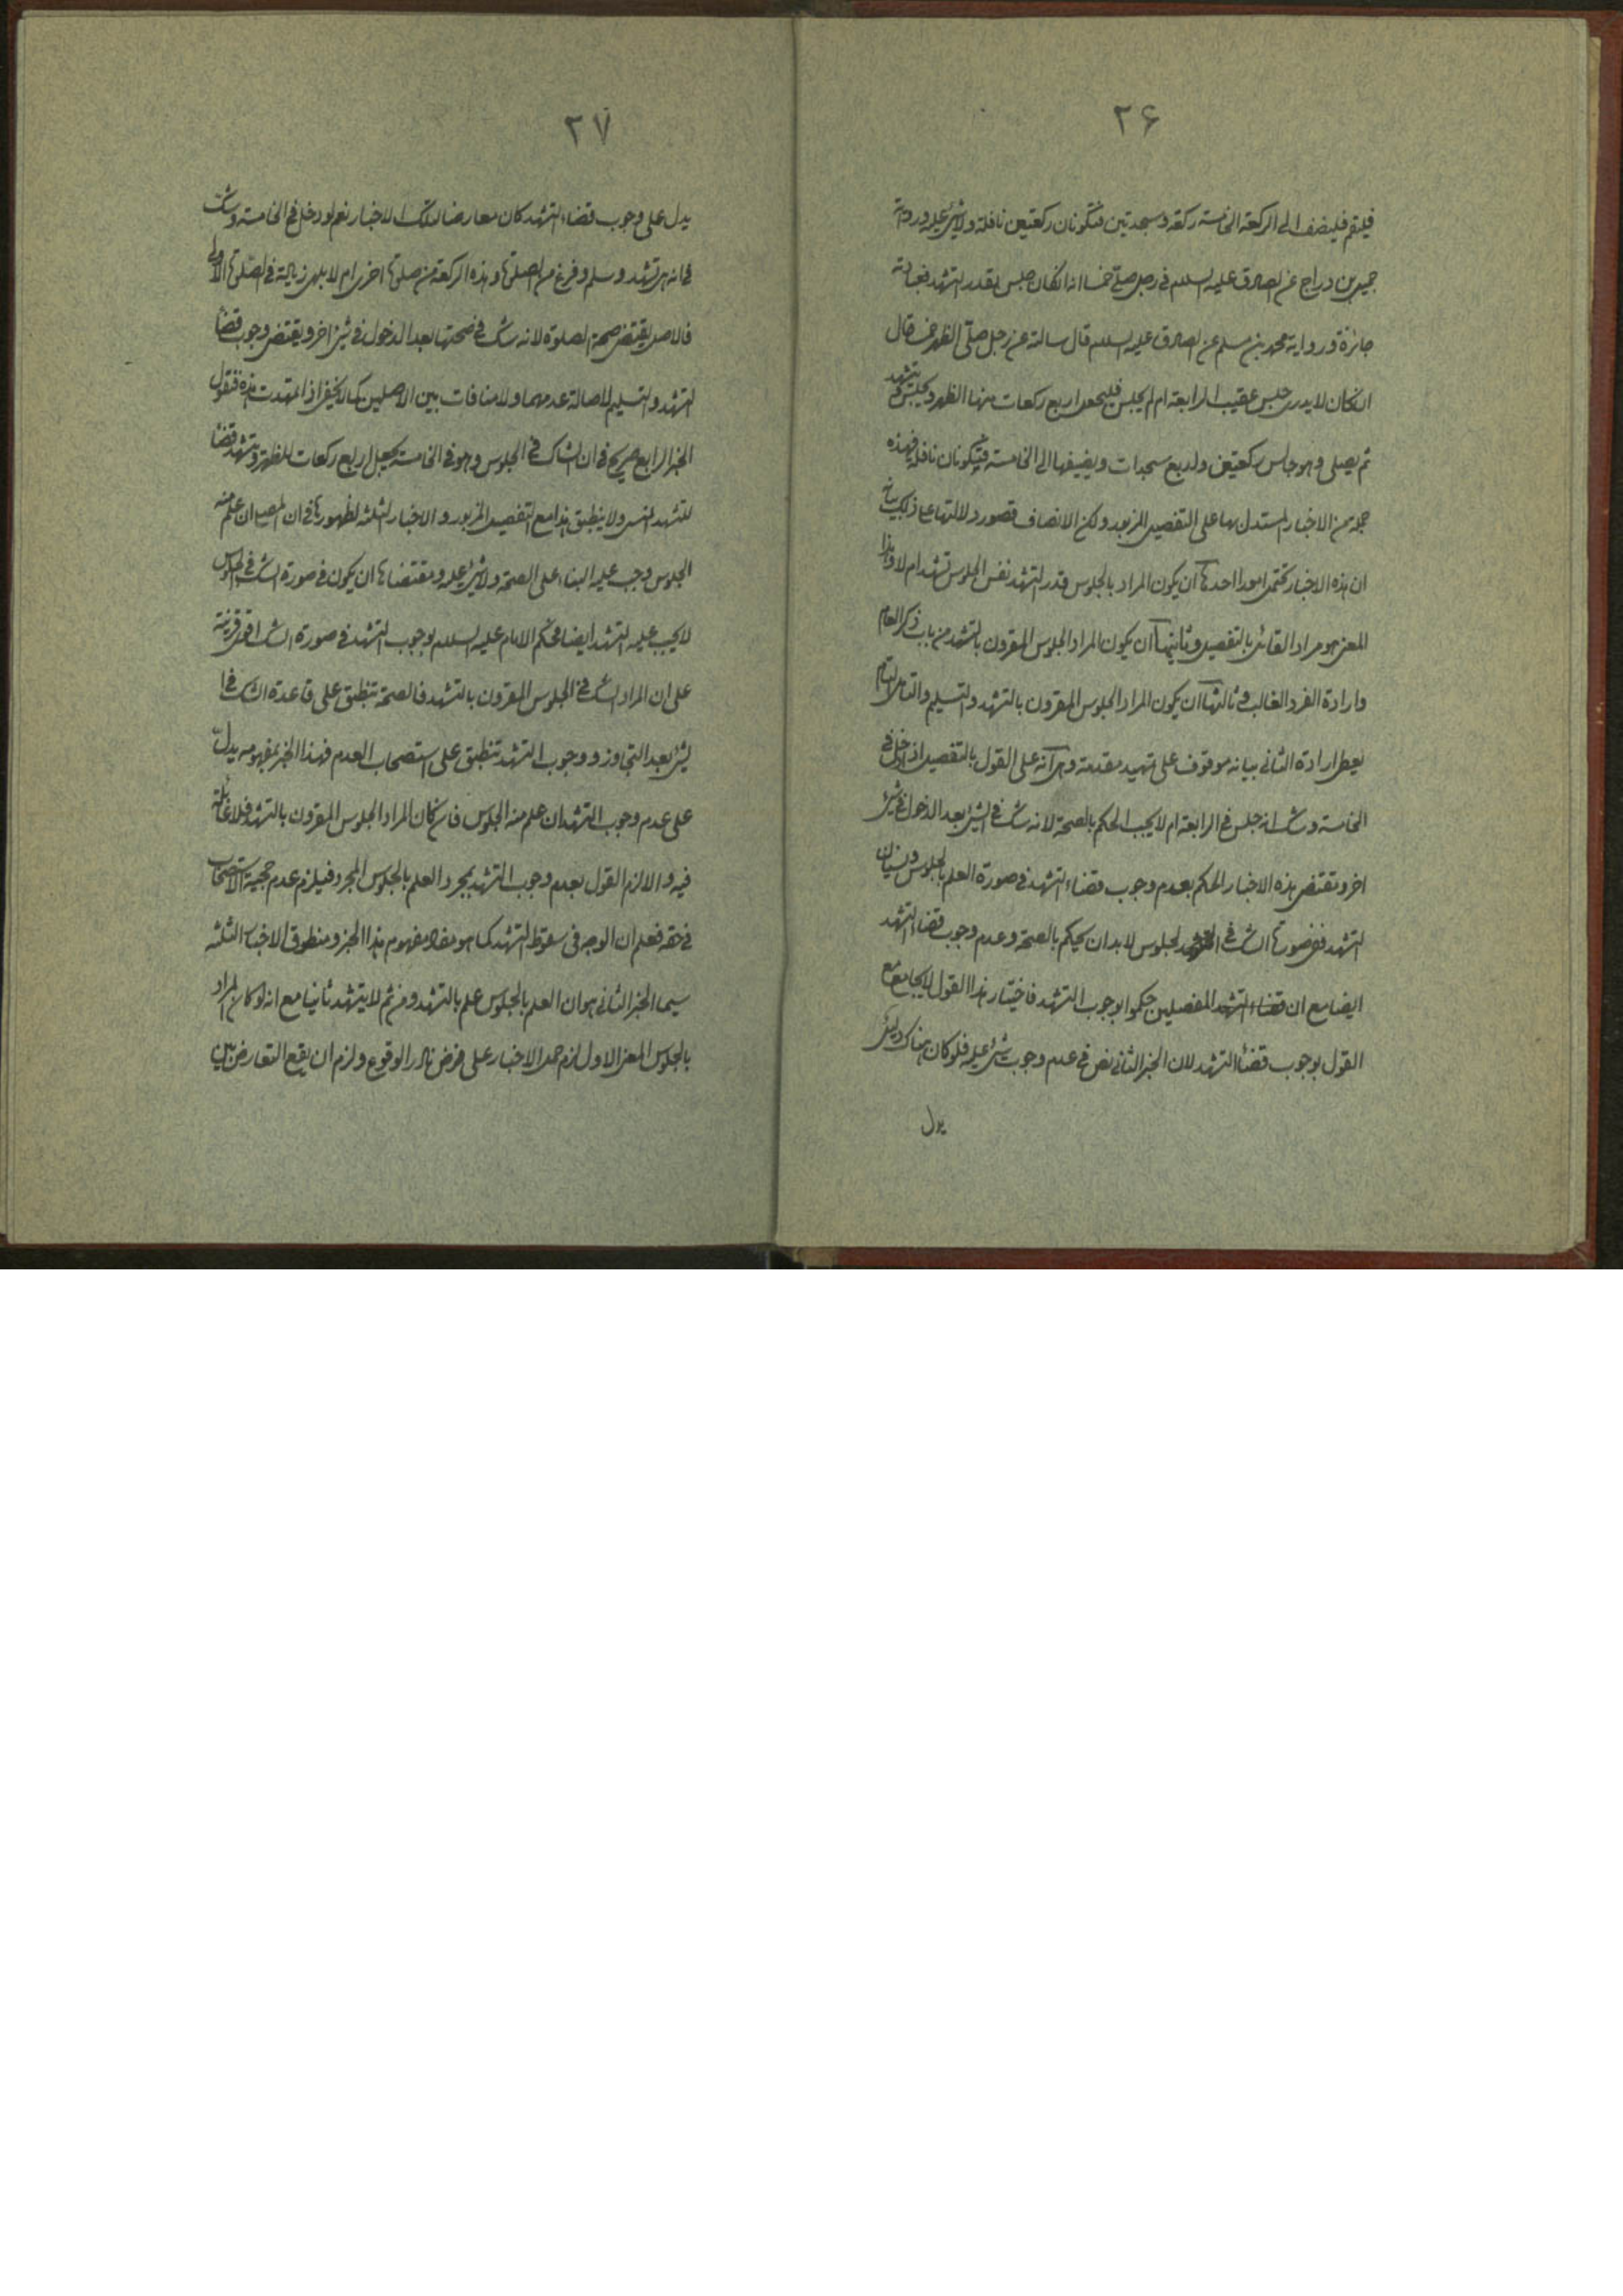 ۲۶
فليقم فليضف الى الركعة الخامسة ركعة وسجدتين فتكونان ركعتين نافلة ولا شئ عليه ورواية
جميل بن دراج عن الصادق عليه السلام في رجل صلى خمسا انه ان كان جلس بقدر التشهد فعبادته
جائزة ورواية محمد بن مسلم عن الصادق عليه السلام قال سالته عن رجل صلى الظهر خمسا قال
ان كان لا يدرى جلس عقيب الرابعة ام لم يجلس فليجعل اربع ركعات منها الظهر ويجلس و يتشهد
ثم يصلى وهو جالس ركعتين واربع سجدات ويضيفها الى الخامسة فتكونان نافلة فهذه
جملة من الاخبار المستدل بها على التفصيل المزبور ولكن الانصاف قصور دلالتها على ذلك
ان هذه الاخبار تحتمل امورا احدها ان يكون المراد بالجلوس قدر التشهد نفس الجلوس تشهد ام لا وهذا
المعنى هو مراد القائل بالتفصيل وثانيها ان يكون المراد الجلوس المقرون بالتشهد من باب ذكر العام
وارادة الفرد الغالب وثالثها ان يكون المراد الجلوس المقرون بالتشهد والتسليم والتامل التام
يعطى ارادة الثانى بيانه موقوف على تمهيد مقدمة وهى انه على القول بالتفصيل اذا دخل في
الخامسة وشك انه جلس في الرابعة ام لا يجب الحكم بالصحة لانه شك في الشئ بعد الدخول في شئ
اخر وتقتضى هذه الاخبار الحكم بعدم وجوب قضاء التشهد في صورة العلم بالجلوس ونسيان
التشهد ففى صورتها الشك في الجلوس لا بد ان يحكم بالصحة وعدم وجوب قضاء التشهد
ايضا مع ان المفصلين حكموا بوجوب التشهد فاختيار هذا القول لا يجامع مع
القول بوجوب قضاء التشهد لان الخبر الثانى نص في عدم وجوب شئ عليه فلو كان هناك دليل
يدل
۲۷
يدل على وجوب قضاء التشهد كان معارضا لتلك الاخبار نعم لو دخل في الخامسة وشك
في انه هل تشهد وسلم وفرغ من اصلها وهذه الركعة من صلوة اخرى ام لا بل هى زيادة في الصلوة الاولى
فالاصل يقتضى صحة الصلوة لانه شك في صحتها بعد الدخول في شئ اخر ويقتضى وجوب قضاء
التشهد والتسليم لاصالة عدمهما ولا منافات بين الاصلين كما لا يخفى اذا تمهدت هذه فنقول
الخبر الرابع صريح في ان الشاك في الجلوس وهو في الخامسة يجعل اربع ركعات للظهر ويتشهد قضاء
للتشهد المنسى ولا ينطبق هذا مع التفصيل المزبور والاخبار الثلثة لظهورها في ان المصلى ان علم منه
الجلوس وجب عليه البناء على الصحة ولا شئ عليه ومقتضاها ان يكون في صورة الشك في الجلوس
لا يجب عليه التشهد ايضا فحكم الامام عليه السلام بوجوب التشهد في صورة الشك اقوى قرينة
على ان المراد الشك في الجلوس المقرون بالتشهد فالصحة تنطبق على قاعدة الشك في
شئ بعد التجاوز ووجوب التشهد تنطبق على استصحاب العدم فهذا الخبر بمفهومه يدل
على عدم وجوب التشهد ان علم منه الجلوس فان كان المراد الجلوس المقرون بالتشهد فلا غائلة
فيه والا لزم القول بعدم وجوب التشهد بمجرد العلم بالجلوس المجرد فيلزم عدم حجية الاستصحاب
في حقه فعلم ان الوجه في سقوط التشهد كما هو مفاد مفهوم هذا الخبر ومنطوق الاخبار الثلثة
سيما الخبر الثانى هو ان العلم بالجلوس علم بالتشهد ومن ثم لا يتشهد ثانيا مع انه لو كان المراد
بالجلوس المعنى الاول لزم حمل الاخبار على فرض نادر الوقوع ولزم ان يقع التعارض بين